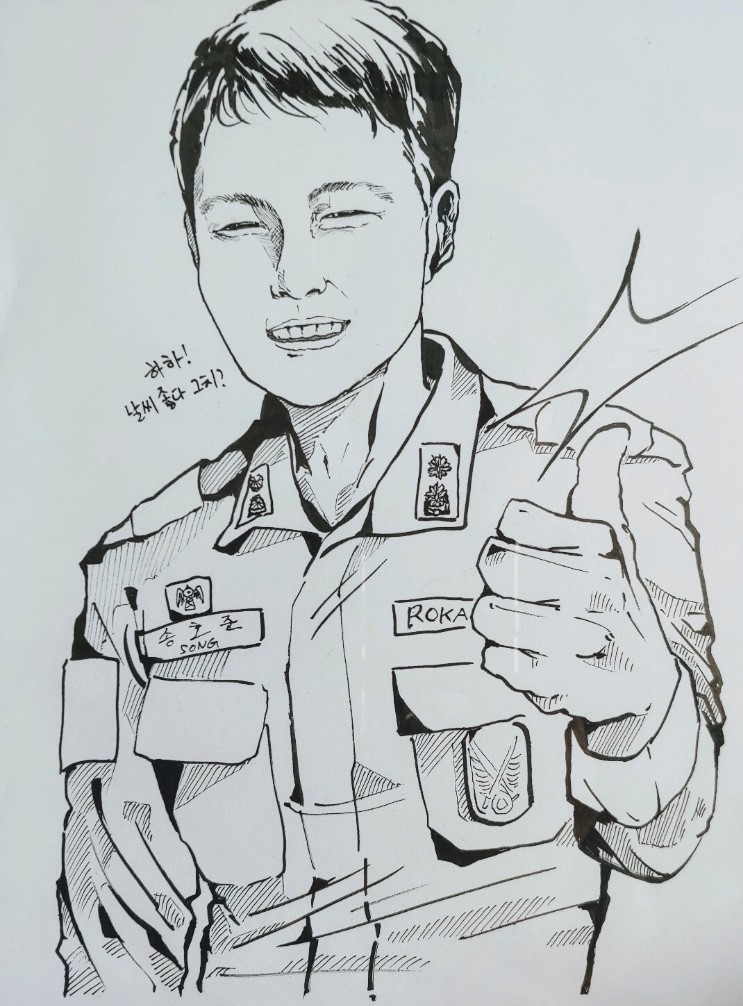 하하!
날씨 좋다 그치?
송호준
SONG
ROKA